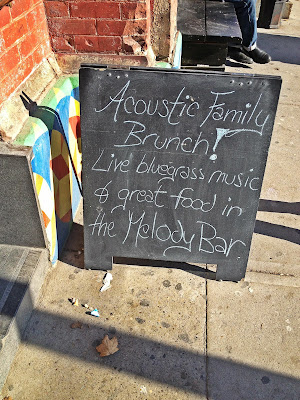 Acoustic Family
Brunch!
Live bluegrass music
& great food in
the Melody Bar